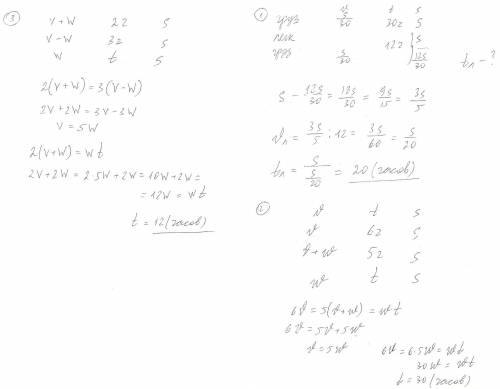 ③
V+W 2г S
V-W 3г S
W t S
2(V+W)=3(V-W)
2V+2W=3V-3W
V=5W
2(V+W)=Wt
2V+2W=2·5W+2W=10W+2W=
=12W=Wt
t=12(часов)
①
v t s
груз S/30 30г S
легк 12г } S
груз S/30 12S/30
tл-?
S - 12S/30 = 18S/30 = 9S/15 = 3S/5
vл = 3S/5 : 12 = 3S/60 = S/20
tл = S / S/20 = 20(часов)
②
v t s
v 6г S
v+w 5г S
w t S
6v=5(v+w)=wt
6v=5v+5w
v=5w
6v=6·5w=wt
30w=wt
t=30(часов)